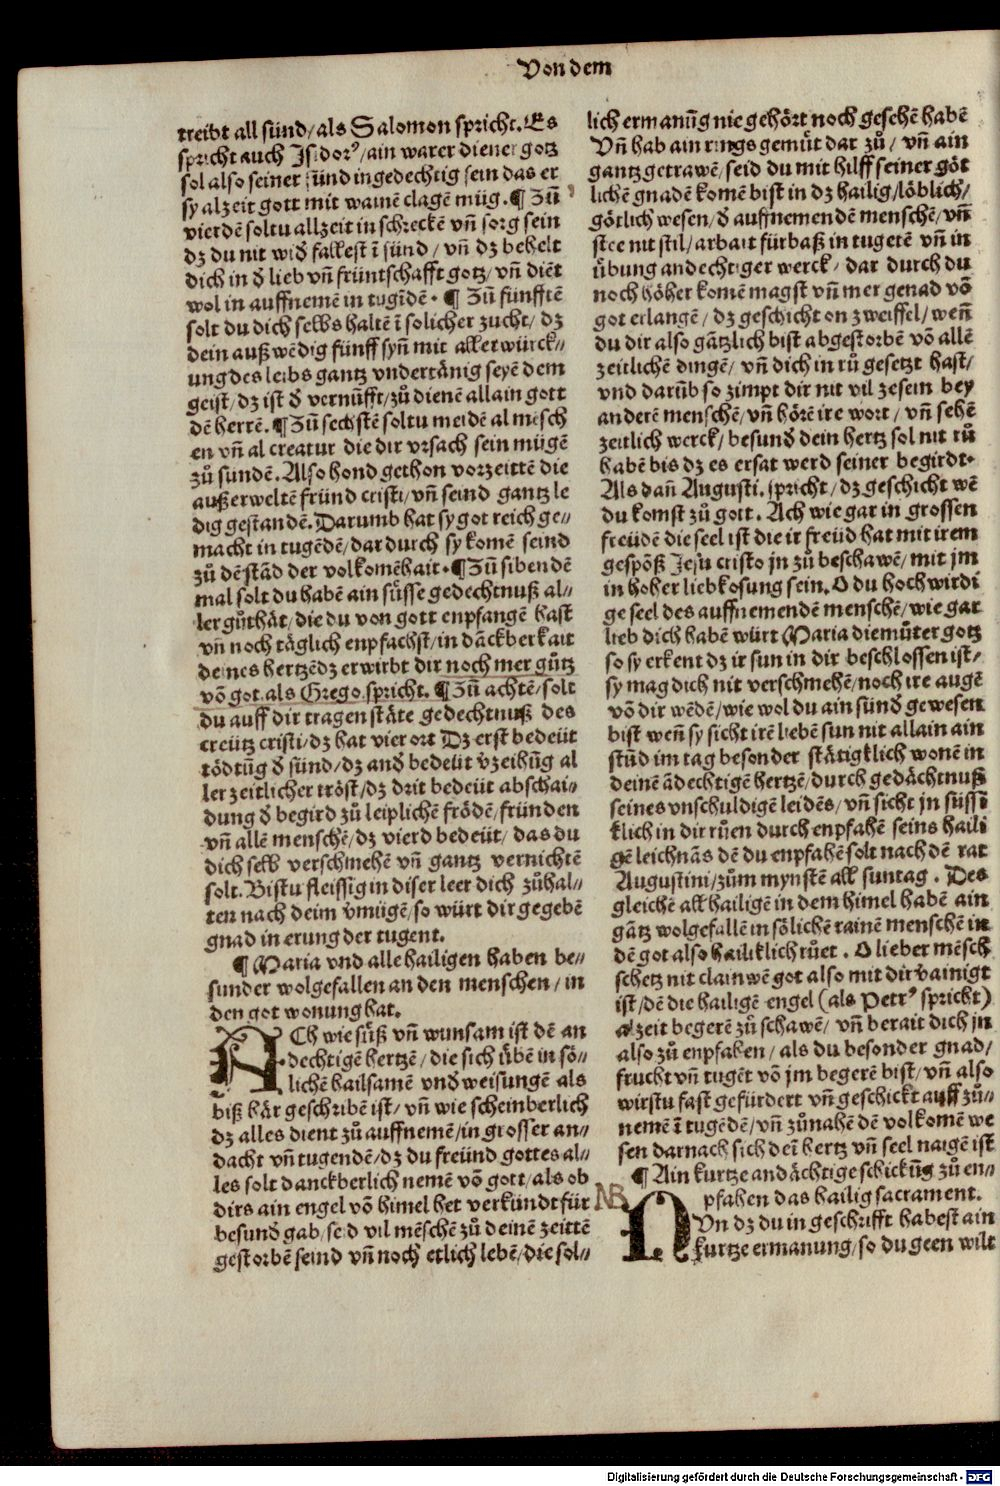 Von dem
treibt all sünd/als Salomon spricht. Es
spricht auch Jsidorꝰ/ain warer diener gotz
sol also seiner sünd ingedechtig sein das er
sy alzeit gott mit wainē clagē müg. ¶ Zū
vierdē soltu allzeit in schreckē vn̄ sorg sein
dz du nit wið fallest ī sünd/ vn̄ dz behelt
dich in ð lieb vn̄ früntschafft gotz/ vn̄ diēt
wol in auffnemē in tugēdē. ¶ Zū fünfftē
solt du dich selbs haltē ī solicher zucht/ dz
dein außwēdig fünff syn̄ mit aller würck⸗
ung des leibs gantz vndertänig seyē dem
geist/dz ist ð vernūfft/zů dienē allain gott
dē herrē. ¶ Zū sechstē soltu meidē al mēsch
en vn̄ al creatur die dir vrsach sein mügē
zů sundē. Also hond gethon vorzeittē die
außerweltē fründ cristi/vn̄ seind gantz le
dig gestandē. Darumb hat sy got reich ge⸗
macht in tugēdē/dar durch sy komē seind
zů dē stād der volkomēhait. ¶ Zū sibendē
mal solt du habē ain süsse gedechtnuß al⸗
ler gůthät/die du von gott enpfangē hast
vn̄ noch täglich enpfachst/in dāckberkait
deines hertzē dz erwirbt dir noch mer gůtz
vō got als Grego. spricht. ¶ Zū achtē/solt
du auff dir tragen stäte gedechtnuß des
creütz cristi/dz hat vier ort Dz erst bedeüt
tödtūg ð sünd/dz anð bedeüt vzeihūg al
ler zeitlicher tröst/dz drit bedeüt abschai⸗
dung ð begird zů leiplichē frödē/fründen
vn̄ allē menschē/dz vierd bedeüt/ das du
dich selb verschmehē vn̄ gantz vernichtē
solt. Bistu fleissig in diser leer dich zůhal⸗
ten nach deim vmügē/so würt dir gegebē
gnad in erung der tugent.
¶ Maria vnd alle hailigen haben be⸗
sunder wolgefallen an den menschen/ in
den got wonung hat.
ACh wie süß vn̄ wunsam ist dē an
dechtigē hertzē/die sich übē in sö⸗
lichē hailsamē vnðweisungē als
biß här geschribē ist/ vn̄ wie scheinberlich
dz alles dient zů auffnemē/in grosser an⸗
dacht vn̄ tugendē/dz du freünd gottes al⸗
les solt danckberlich nemē vō gott/als ob
dirs ain engel vō himel het verkündt für
besunð gab/seid vil mēschē zů deinē zeittē
gestorbē seind vn̄ noch etlich lebē/die sol⸗
lich ermanūg nie gehört noch gesehē habē
Vn̄ hab ain rings gemüt dar zů/ vn̄ ain
gantz getrawē/seid du mit hilff seiner göt
lichē gnadē komē bist in dz hailig/löblich/
götlich wesen/ð auffnemendē menschē/vn̄
stee nit stil/arbait fürbaß in tugetē vn̄ in
übung andechtiger werck/ dar durch du
noch höher komē magst vn̄ mer genad vō
got erlangē/ dz geschicht on zweiffel/wen̄
du dir also gātzlich bist abgestorbē vō allē
zeitlichē dingē/ vn̄ dich in rů gesetzt hast/
vnd darūb so zimpt dir nit vil zesein bey
anderē menschē/vn̄ hörē ire wort/ vn̄ sehē
zeitlich werck/besunð dein hertz sol nit rů
habē bis dz es ersat werd seiner begirdt.
Als dan̄ Augusti. spricht/dz geschicht wē
du komst zů gott. Ach wie gar in grossen
freüdē die seel ist die ir freüd hat mit irem
gespōß Jesu cristo jn zů beschawē/mit jm
in hoher liebkosung sein. O du hochwirdi
ge seel des auffnemendē menschē/wie gar
lieb dich habē würt Maria die můter gotz
so sy erkent dz ir sun in dir beschlossen ist/
sy mag dich nit verschmehē/noch ire augē
vō dir wēdē/wie wol du ain sünð gewesen
bist wen̄ sy sicht irē liebē sun nit allain ain
stūd im tag besonder stätigklich wonē in
deinē ādechtigē hertzē/durch gedächtnuß
seines vnschuldigē leidēs/vn̄ sicht jn süssi
klich in dir růen durch enpfahē seins haili
gē leichnās dē du enpfahē solt nach dē rat
Augustini/zům mynstē all suntag. Des
gleichē all hailigē in dem himel habē ain
gātz wolgefallē in sölichē rainē menschē in
dē got also hailiklich růet. O lieber mēsch
schetz nit clain wē got also mit dir vainigt
ist/dē die hailigē engel (als Petrꝰ spricht)
alzeit begerē zů schawē/ vn̄ berait dich jn
also zů enpfahen/als du besonder gnad/
frucht vn̄ tugēt vō jm begerē bist/vn̄ also
wirstu fast gefürdert vn̄ geschickt auff zů⸗
nemē ī tugēdē/vn̄ zůnahē dē volkomē we
sen darnach sich deī hertz vn̄ seel naigē ist
¶ Ain kurtze andächtige schickūg zů en⸗
pfahen das hailig sacrament.
NB
NVn dz du in geschrifft habest ain
kurtze ermanung/so du geen wilt
Digitalisierung gefördert durch die Deutsche Forschungsgemeinschaft - DFG